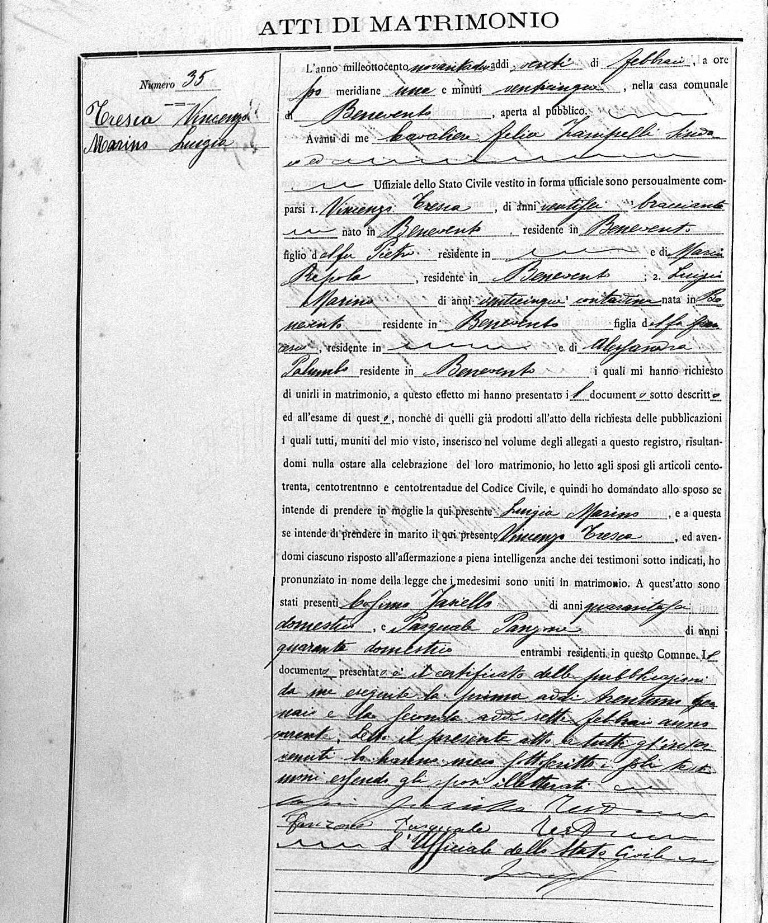 ATTI DI MATRIMONIO
Numero 35
Tresca Vincenzo
Marino Luigia
L'anno milleottocento novantadue addì venti di febbraio, a ore
po meridiane una e minuti venticinque, nella casa comunale
di Benevento, aperta al pubblico.
Avanti di me Cavaliere Zampelli Sinda-
co ed
Uffiziale dello Stato Civile vestito in forma ufficiale sono persoualmente com-
parsi 1. Vincenzo Tresca, di anni ventisei bracciante
nato in Benevento, residente in Benevento
figlio del fu Pietro residente in e di Maria
Repola, residente in Benevento; 2. Luigia
Marino di anni venticinque contadina nata in Be-
nevento residente in Benevento figlia del fu Fran-
cesco, residente in e di Alessandra
Palumbo residente in Benevento i quali mi hanno richiesto
di unirli in matrimonio, a questo effetto mi hanno presentato il documento sotto descritto
ed all'esame di questo, nonchè di quelli già prodotti all'atto della richiesta delle pubblicazioni
i quali tutti, muniti del mio visto, inserisco nel volume degli allegati a questo registro, risultan-
domi nulla ostare alla celebrazione del loro matrimonio, ho letto agli sposi gli articoli cento-
trenta, centotrentnno e centotrentadue del Codice Civile, e quindi ho domandato allo sposo se
intende di prendere in moglie la qui presente Luigia Marino, e a questa
se intende di prendere in marito il qui presente Vincenzo Tresca, ed aven-
domi ciascuno risposto all'affermazione a piena intelligenza anche dei testimoni sotto indicati, ho
pronunziato in nome della legge che i medesimi sono uniti in matrimonio. A quest'atto sono
stati presenti Cosimo di anni quarantasei
domestico, e Pasquale Panzone di anni
quaranta domestico entrambi residenti in questo Comnne. Il
documento presentato è il certificato delle pubblicazioni
da me eseguite la prima addì trentuno gen-
naio e la seconda addì sette febbraio anno
corrente. Letto il presente atto a tutti gl'inter-
venuti lo hanno meco sottoscritto i soli testi-
moni essendo gli sposi illetterati
Panzone Pasquale
L'Ufficiale dello Stato Civile